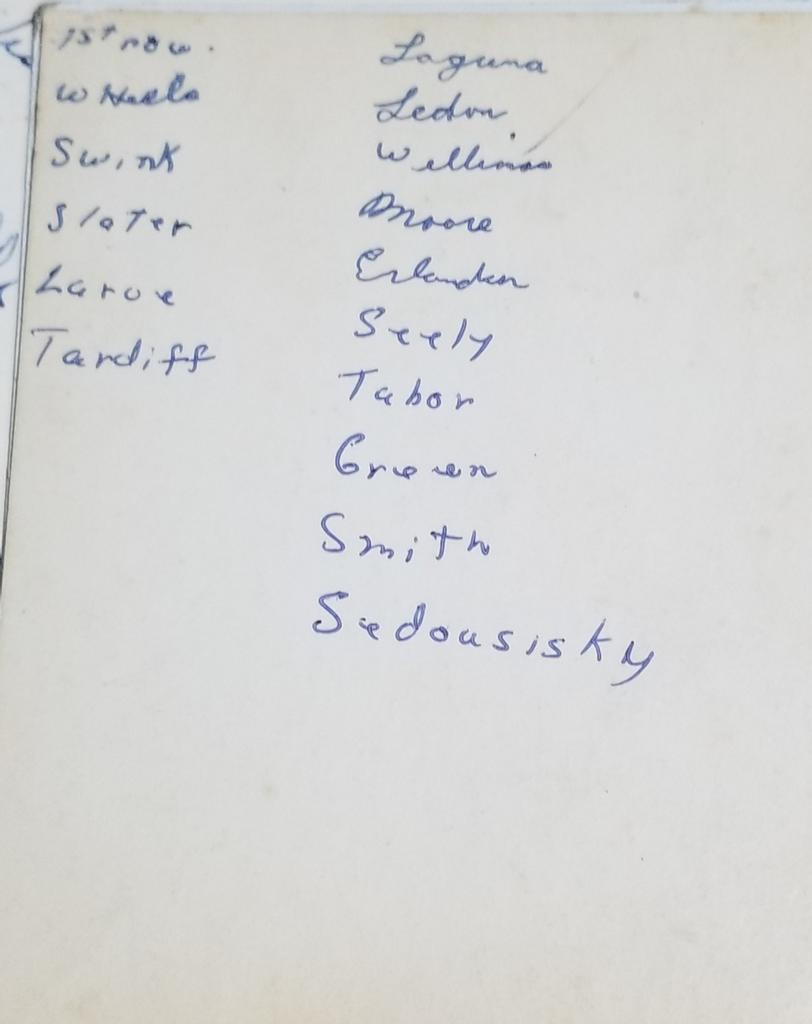 1st row.
Swink
Slater
Laroe
Tardiff
Laguna
Ledon
Williams
Moore
Seely
Tabor
Green
Smith
Sedousisky